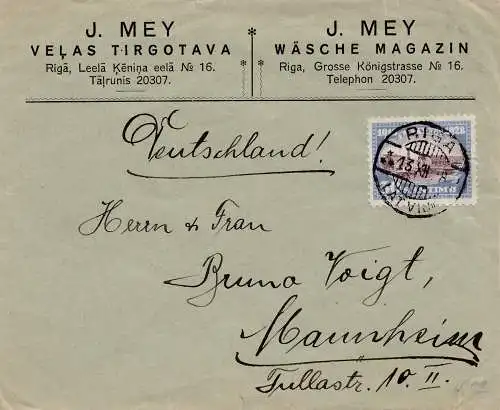 J. MEY
VEĻAS TIRGOTAVA
Rigā, Leelā Ķēniņa eelā № 16.
Tāļrunis 20307.
J. MEY
WÄSCHE MAGAZIN
Riga, Grosse Königstrasse № 16.
Telephon 20307.
Deutschland!
RIGA
13 XII
LATVIJA
1928
Herrn & Frau
Bruno Voigt,
Mannheim
Tullastr. 10. II.